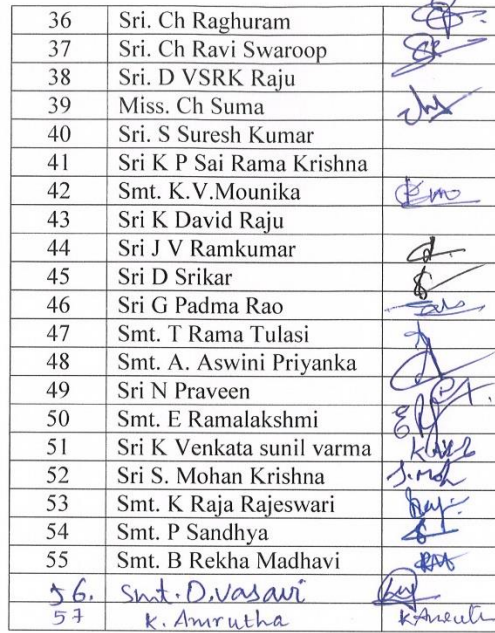 36 Sri. Ch Raghuram
37 Sri. Ch Ravi Swaroop
38 Sri. D VSRK Raju
39 Miss. Ch Suma
40 Sri. S Suresh Kumar
41 Sri K P Sai Rama Krishna
42 Smt. K.V.Mounika
43 Sri K David Raju
44 Sri J V Ramkumar
45 Sri D Srikar
46 Sri G Padma Rao
47 Smt. T Rama Tulasi
48 Smt. A. Aswini Priyanka
49 Sri N Praveen
50 Smt. E Ramalakshmi
51 Sri K Venkata sunil varma
52 Sri S. Mohan Krishna
53 Smt. K Raja Rajeswari
54 Smt. P Sandhya
55 Smt. B Rekha Madhavi
56. Smt. D.Vasavi
57 K. Amrutha